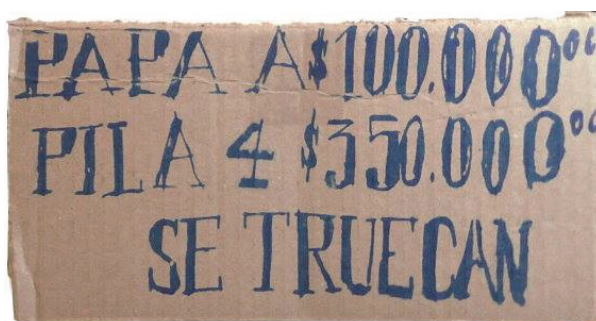 PAPA A $100.000⁰⁰
PILA 4 $350.000⁰⁰
SE TRUECAN